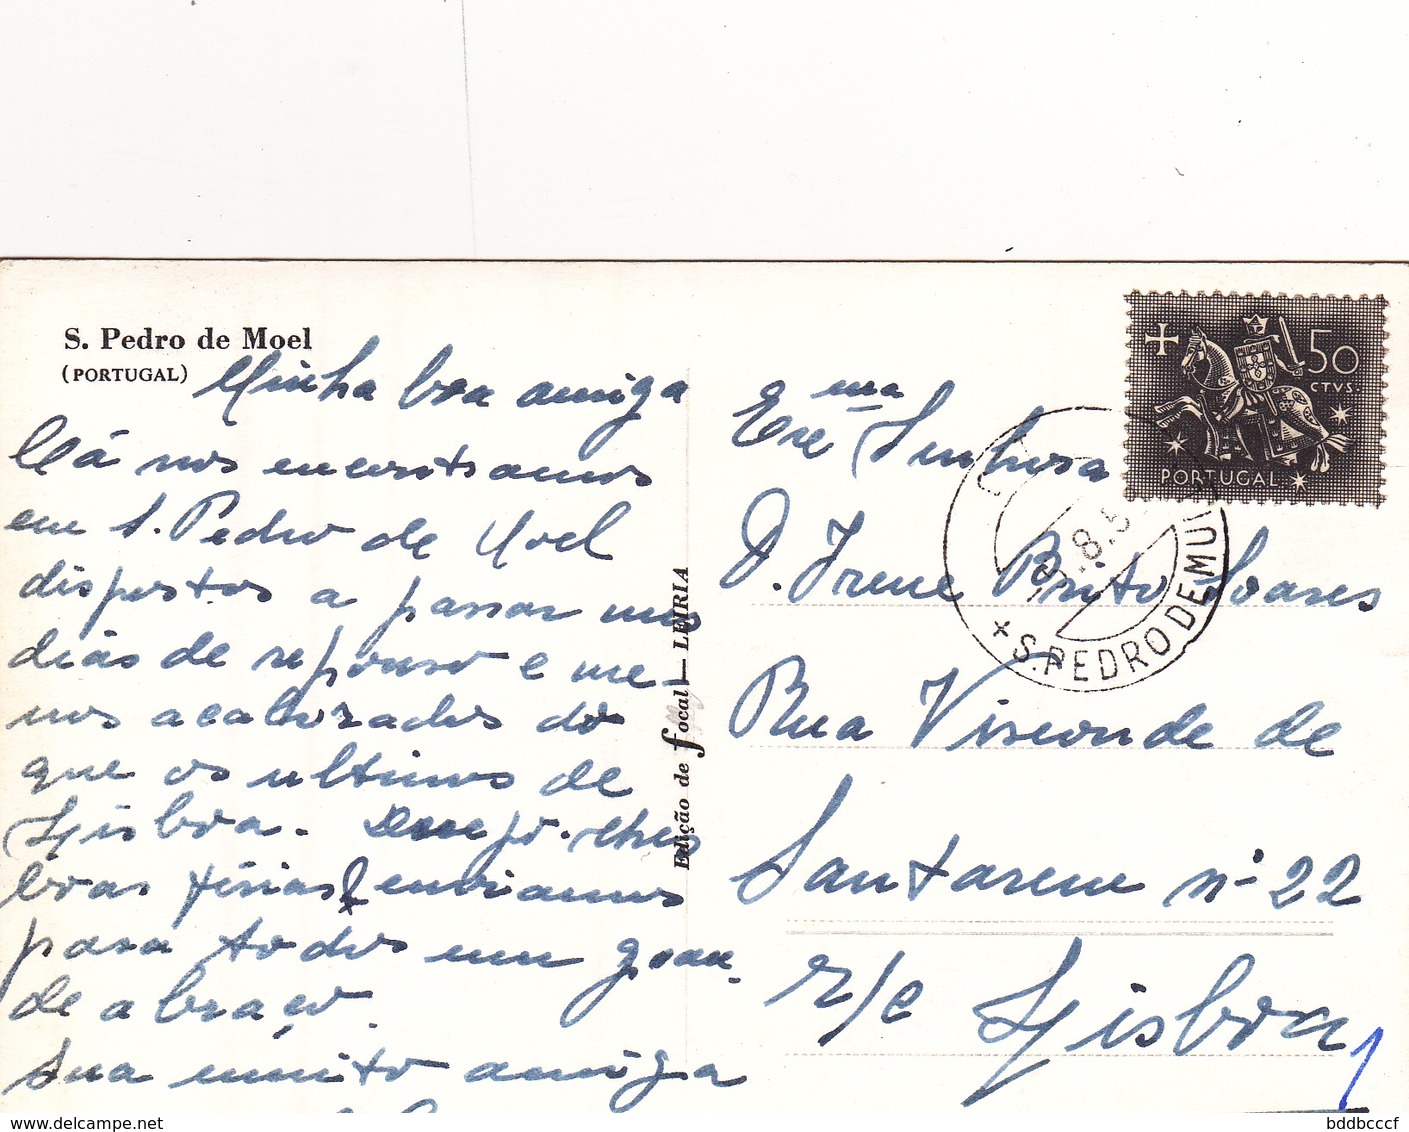 S. Pedro de Moel
(PORTUGAL)
Minha boa amiga
Cá nos encontramos
em S. Pedro de Moel
dispostos a passar uns
dias de repouso e me-
nos acalorados do
que os ultimos de
Lisboa. Desejo-lhes
boas férias e enviamos
para todos um gran-
de abraço.
Sua muito amiga
Edição de focal — LEIRIA
50
CTVS.
PORTUGAL
8.5
S.PEDRO DE MU
Exema Senhora
D. Irene Brito Soares
Rua Visconde de
Santarem nº 22
r/c Lisboa
1
www.delcampe.net
bddbcccf